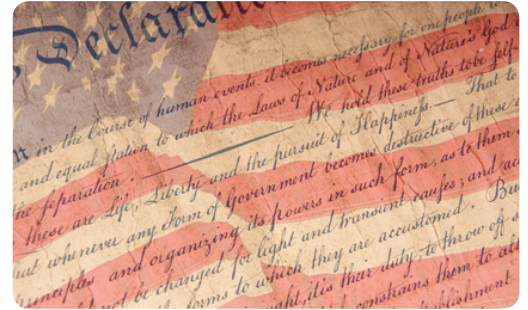 Declaration
n in the Course of human events, it becomes necessary for one people to
and equal station to which the Laws of Nature and of Nature's God
the separation. We hold these truths to be self
these are Life, Liberty and the pursuit of Happiness.— That to
that whenever any Form of Government becomes destructive of these
principles and organizing its powers in such form, as to them
not be changed for light and transient causes; and
forms to which they are accustomed. Bu
right, it is their duty, to throw off
constrains them to
establishment